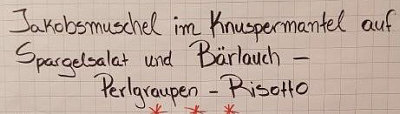 Jakobsmuschel im Knuspermantel auf
Spargelsalat und Bärlauch –
Perlgraupen – Risotto
* * *